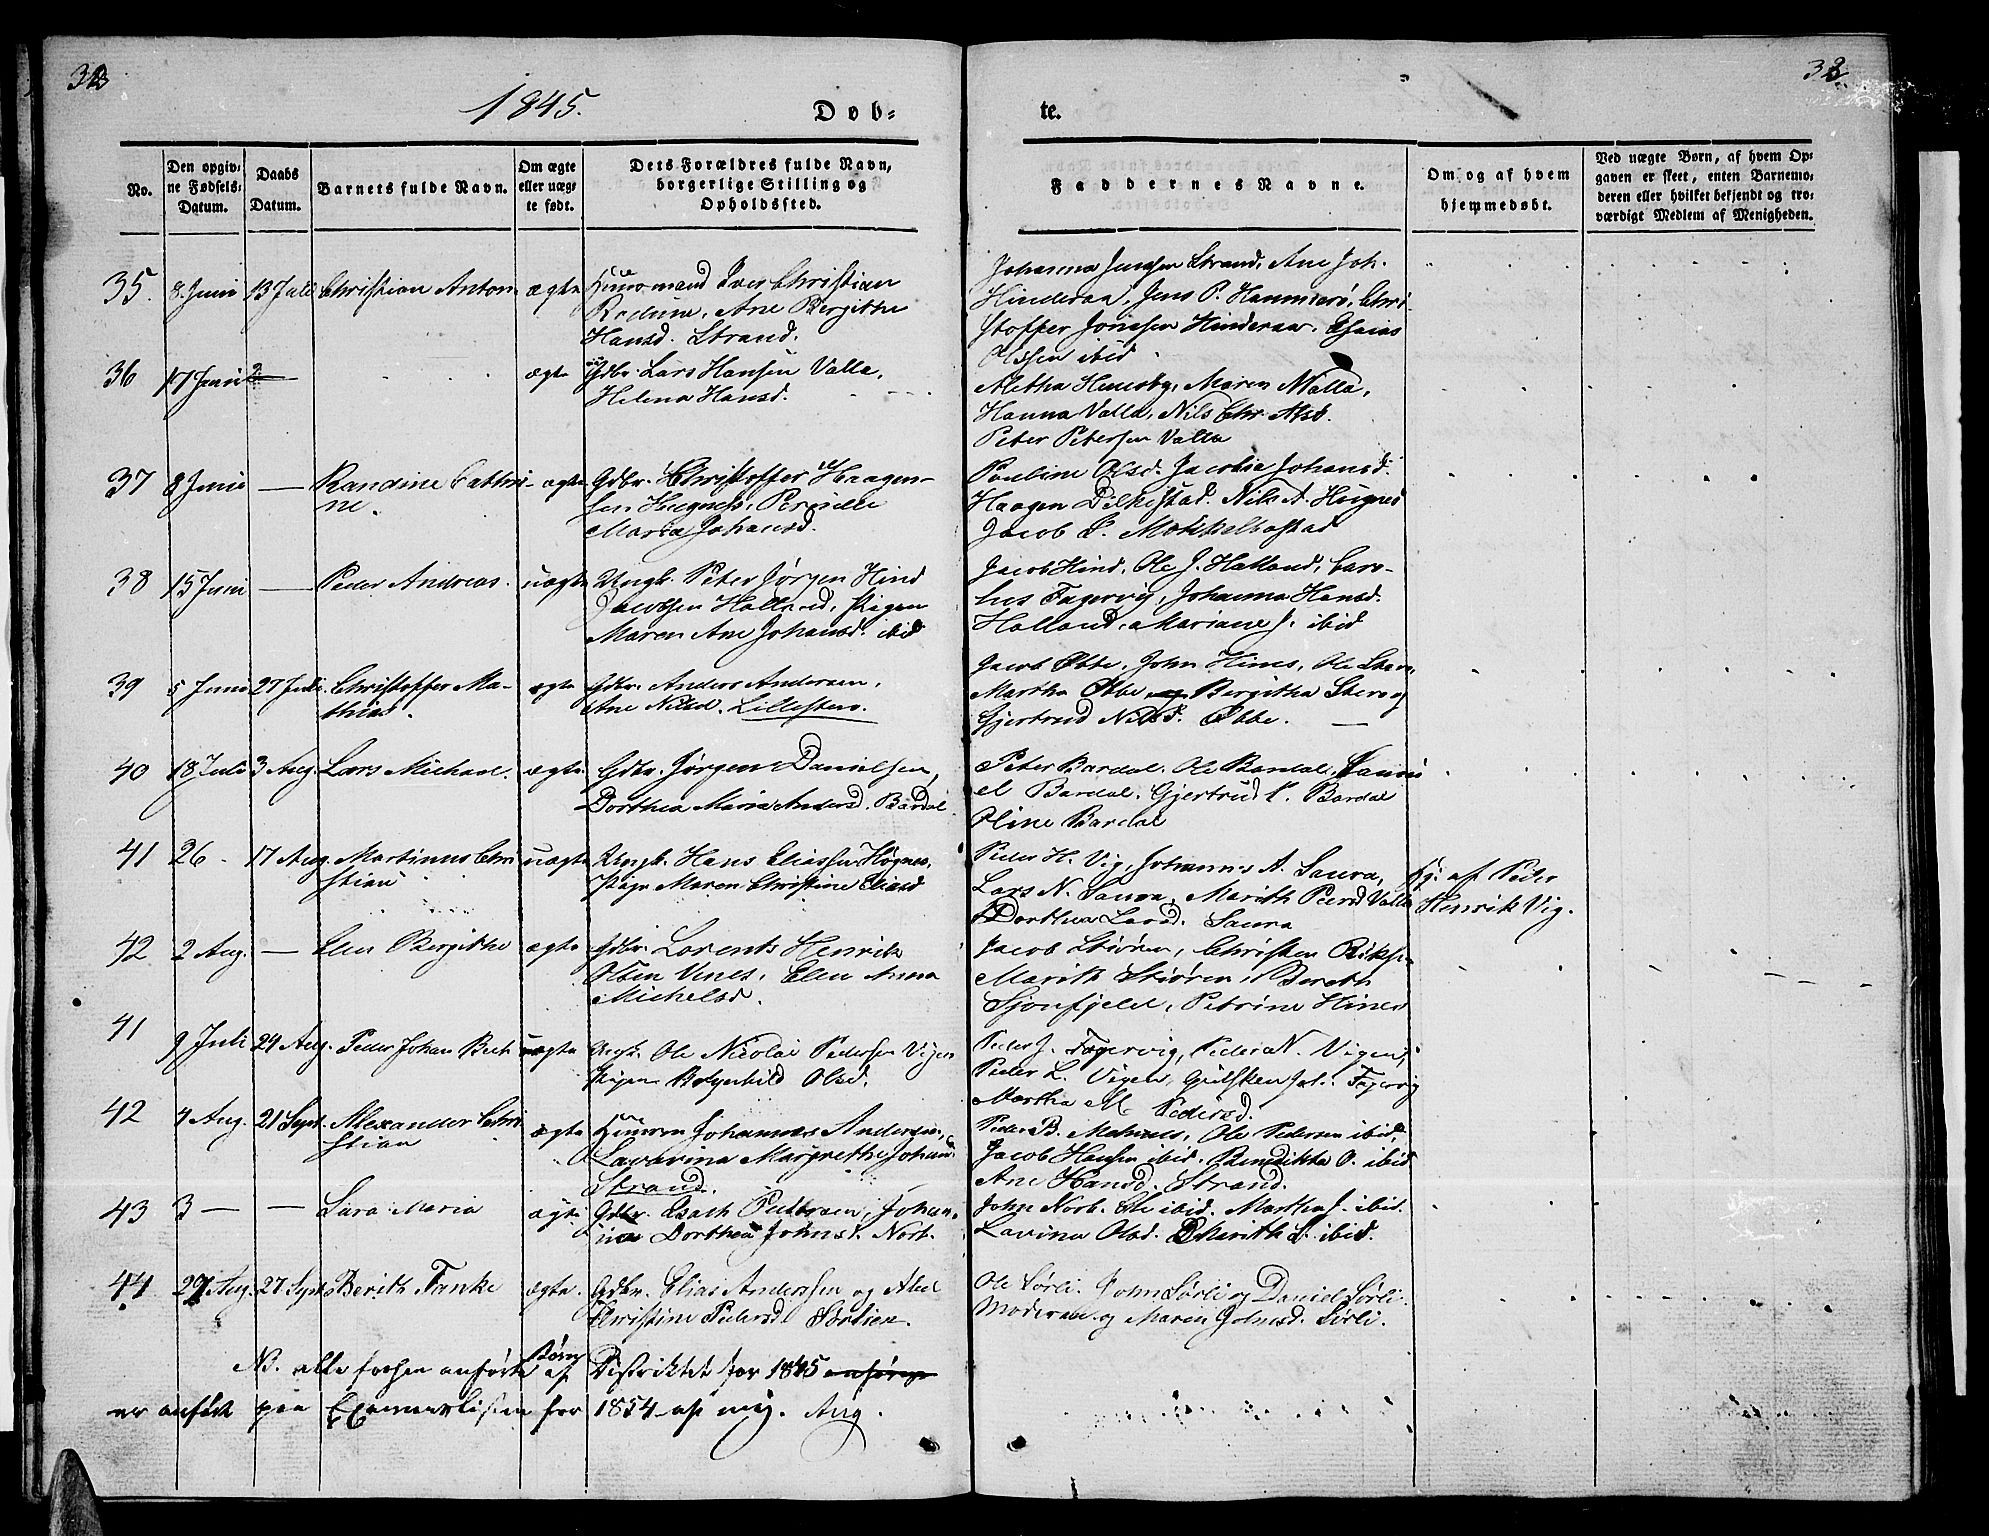 32
33
1845.
Døb-
te.
No.
Den opgiv-
ne Fødsels-
Datum.
Daabs
Datum.
Barnets fulde Navn.
Om ægte
eller uæg-
te født.
Dets Forældres fulde Navn,
borgerlige Stilling og
Opholdssted.
Faddernes Navne.
Om og af hvem
hjemmedøbt.
Ved uægte Børn, af hvem Op-
gaven er skeet, enten Barnemo-
deren eller hvilket bekjendt og tro-
værdigt Medlem af Menigheden.
35. 8 Juni 13 Juli Christian Anton ægte Huusmand Iver Christian
Rodum, Ane Bergithe
Hansd. Strand.
Johanna Jensen Strand, Ane Joh.
Hinderaa, Jens P. Hammerø, Chri-
stoffer Jonssen Hinderaa, Esaias
Olssen ibid
36 17 Juni ægte Gdbr. Lars Hansen Valla,
Helena Hansd.
Aletha Husby, Maren Valla,
Hanna Valla, Nils Chr. Alsø.
Peter Petersen Valla
37 8 Juni — Randine Cathri-
ne.
ægte Gdbr. Christoffer Haagen-
sen Hugnes, Pernille
Maria Johansd.
Pauline Olsd. Jacobia Johansd.
Haagen Dilkestad. Nils A. Hugnes
Jacob P. Mokkelbostad
38 15 Juni — Peder Andreas. uægte Ungk. Peter Jørgen Hind
Jacobsen Halland, Pigen
Maren Ane Johansd. ibid
Jacob Hind, Ole J. Halland, Caro-
lus Fagervig, Johanna Hansd.
Halland, Mariane J. ibid
39 5 Juni 27 Juli. Christoffer Ma-
thias.
ægte Gdbr. Anders Andersen,
Ane Nilsd. Lillestero.
Jacob Øbbe, John Hines, Ole Stero,
Martha Øbbe Bergitha Stero og
Gjertrud Nilsd. Øbbe. —
40 18 Juli 3 Aug. Lars Michael. ægte Gdbr. Jørgen Danielsen,
Dorthea Maria Andersd. Bardal
Peter Bardal. Ole Bardal, Samu-
el Bardal. Gjertrud P. Bardal
Oline Bardal
41 26 - 17 Aug. Martinus Chri
stian
uægte Ungk. Hans Eliassen Høgnes,
Pige Maren Christine Eliasd
Peder H. Vig, Johannes A. Saura,
Lars N. Saura, Marith Peersd Valla
Dorthea Larsd. Saura
Hj. af Peder
Henrik Vig.
42 2 Aug. — Elen Bergithe ægte Gdbr. Lorents Henrik
Olsen Vines, Elen Anna
Michelsd.
Jacob Støren, Christen
Marith Støren, Bereth
Sjonfjeld, Petrine Hines
41 9 Juli 24 Aug. Peder Johan Bech uægte Ungk. Ole Nicolai Pedersen Vigen
Pigen Bolgerhild Olsd.
Peder J. Fagervig, Peder N. Vigen,
Peder L. Vigen, Gulsken Joh. Fagervig
Martha M. Pedersd.
42 4 Aug. 21 Sept. Alexander Chri
stian
ægte Huusm Johannes Andersen,
Lavarina Margrethe Johand
Strand.
Peder B. Mehuus, Ole Pedersen ibid,
Jacob Hansen ibid. Benedikta O. ibid
Ane Hansd. Strand.
43 3 — — Sara Maria ægte Gdbr. Esach Pettersen, Johan-
na Dorthea Johnsd. Norb.
John Norb. Ole ibid. Martha J. ibid.
Lavina Olsd. Marith L. ibid.
44. 29 Aug. 27 Sept. Berith Tanke ægte. Gdbr. Elias Anderssen og Abel
Christine Pedersd. Sørlien.
Ole Sørli. John Sørli og Daniel Sørli.
Moderen og Maren Johnsd. Sørli.
NB. alle forhen anførte Børn af Distriktet for 1845 anføres
er anført paa Examenslisten for 1854 af mig. Aug.